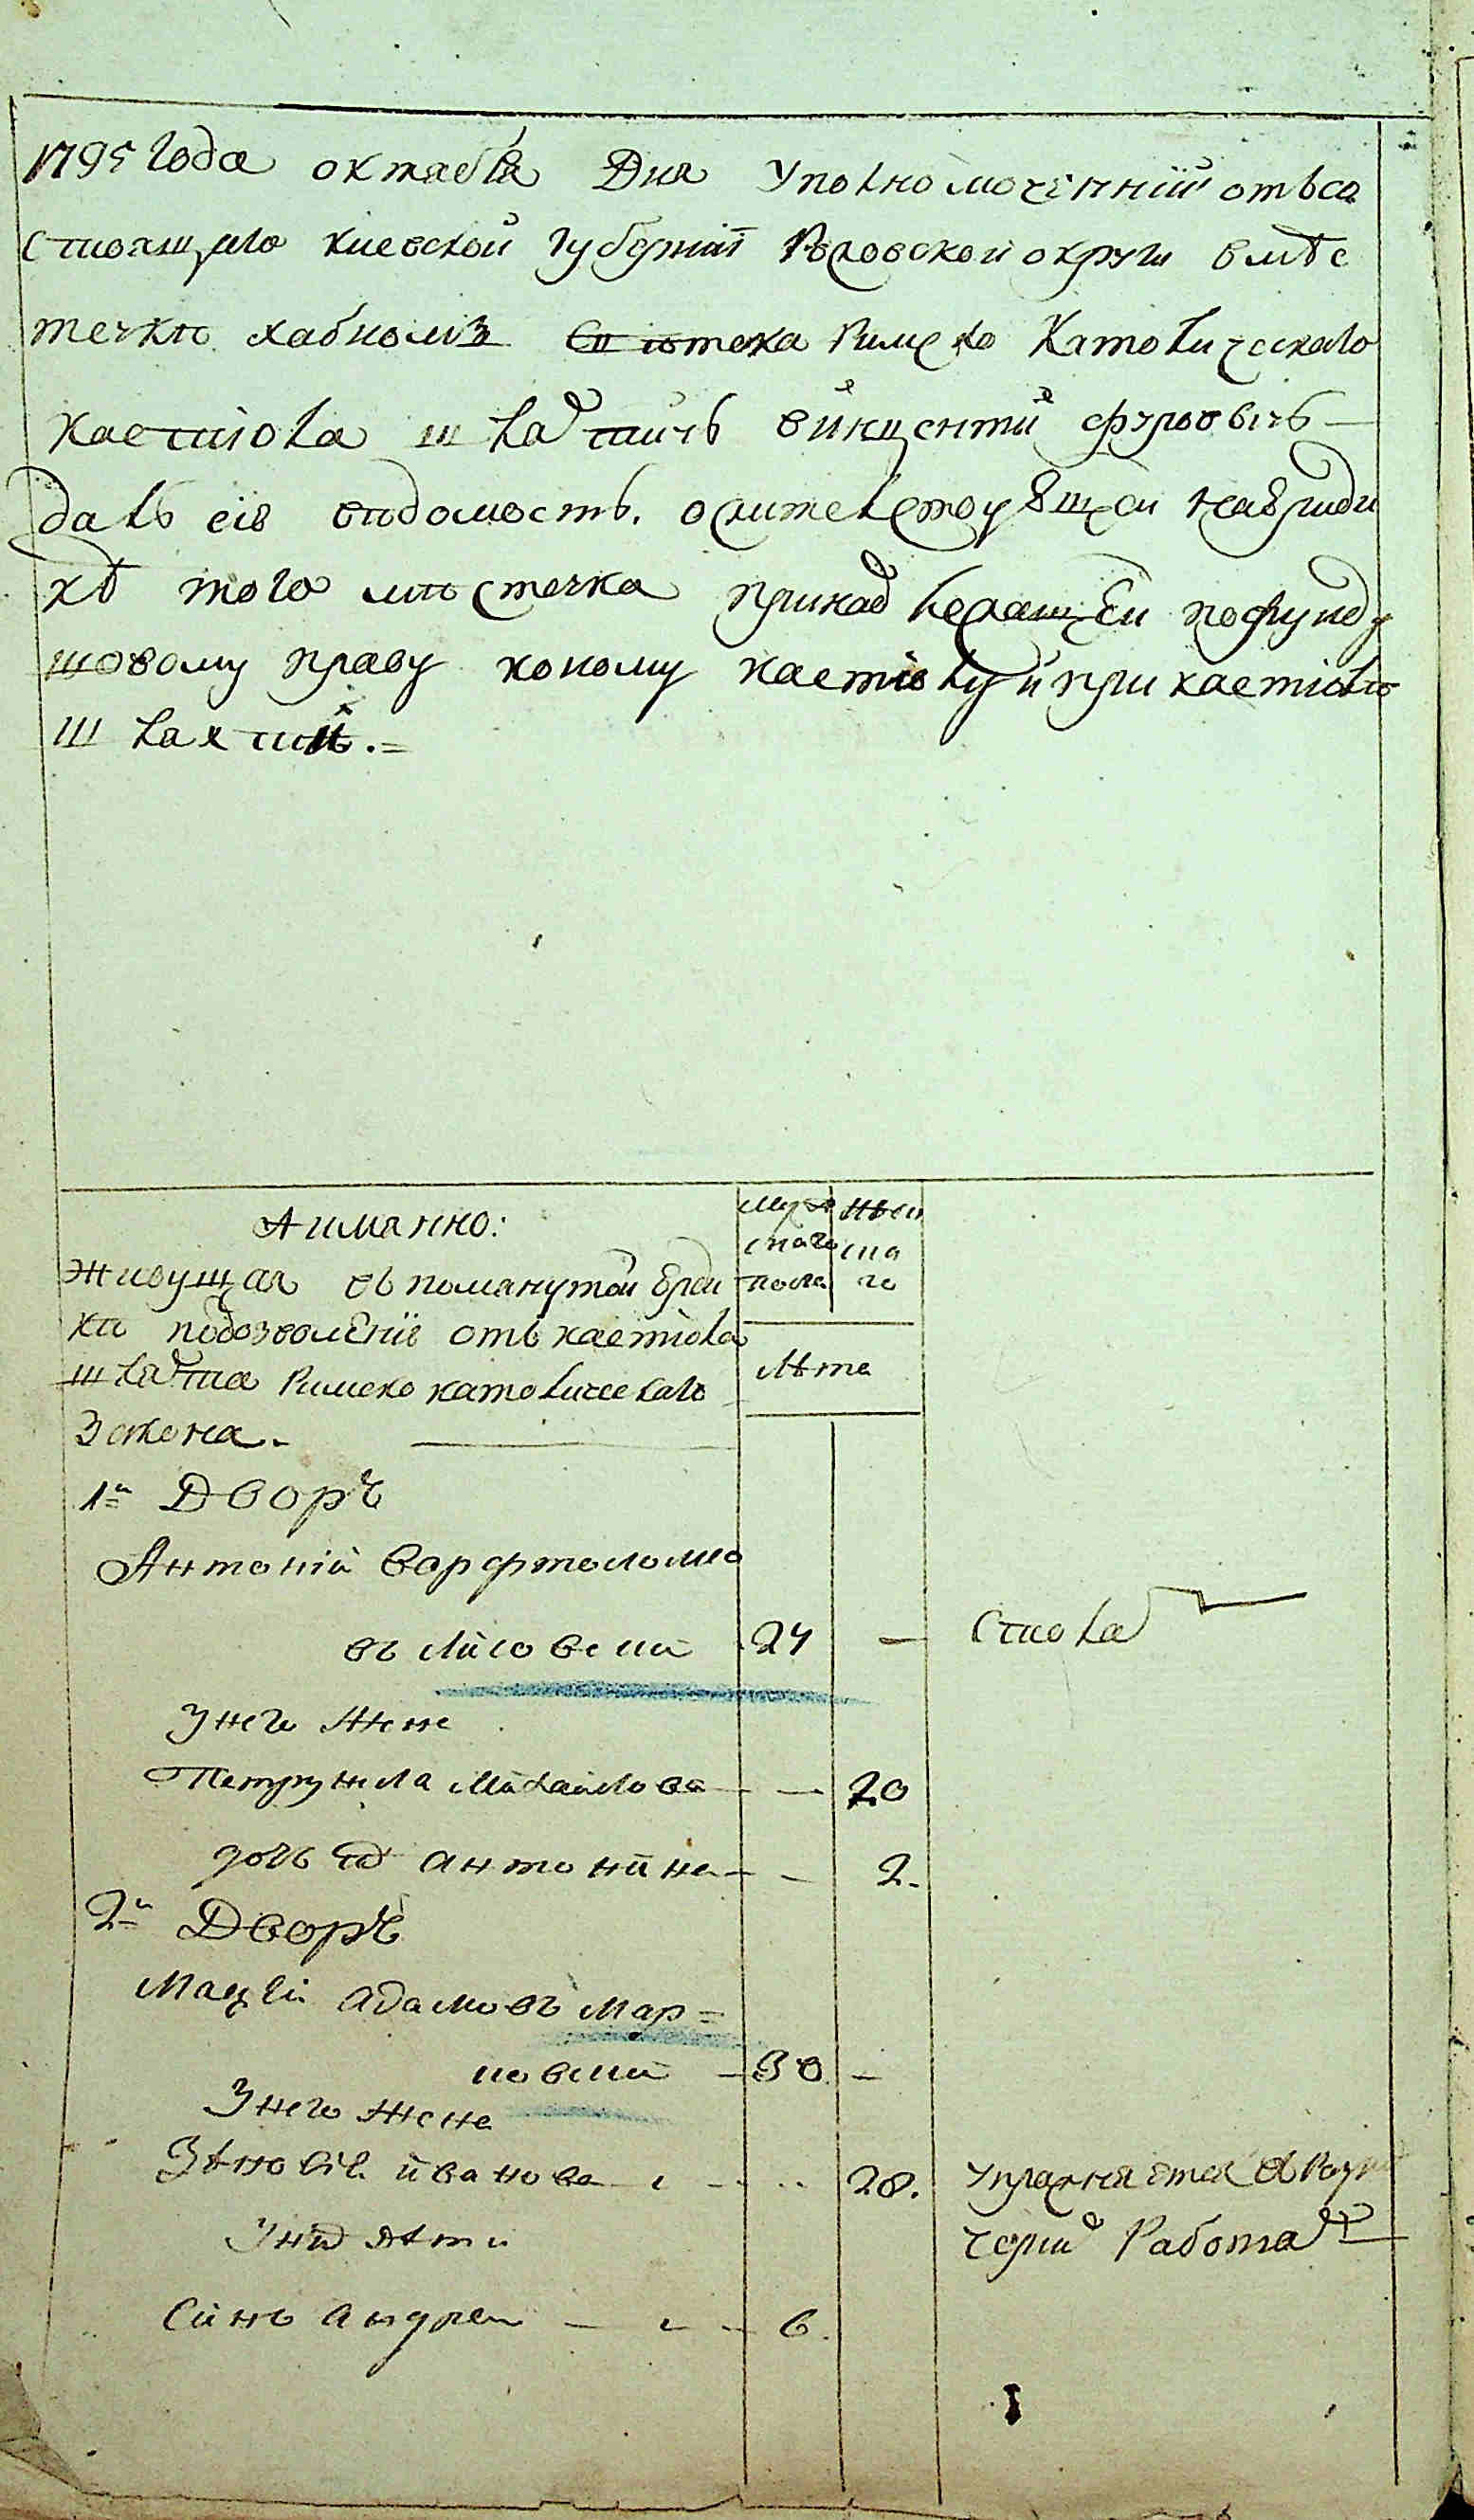 1795 года октября Дня Уполномоченній отъ со
стоящаго киевской губерніи округи в мѣс
течкѣ хабномъ Римско Католическаго
костіола шляхтичъ винцентій
далъ сію вѣдомость о жительствующей на юриди
кѣ того мѣстечка принадлежащей по фунду
шовому праву коному костіолу и при костіолѣ
шляхтѣ.=
А имянно:
живущая въ помянутой юриди
кѣ по дозволенію отъ костіола
шляхта Римско католическаго
Закона.
мужескаго пола
женскаго
лѣта
1й Дворъ
Антоній варфтоломѣо
въ Лисовскій 24 — столя
у него жена
Петрунела Михайлова — — 20
дочь ея антонина — — 2.
2й Дворъ
Мацѣй адамовъ Мар=
ковскій — 30. —
у него жена
ивановa 28. упражняется в
черной Работа
у них дѣти
Синъ андрей — 6.